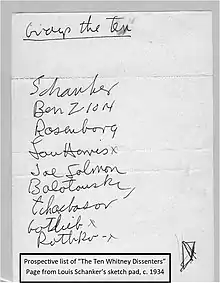 Group the Ten
Schanker
Ben Zion
Rosenborg
Lou Harris x
Joe Solmon
Bolotowsky
Tchacbasov
Gotlieb x
Rothko - x
Prospective list of "The Ten Whitney Dissenters"
Page from Louis Schanker's sketch pad, c. 1934